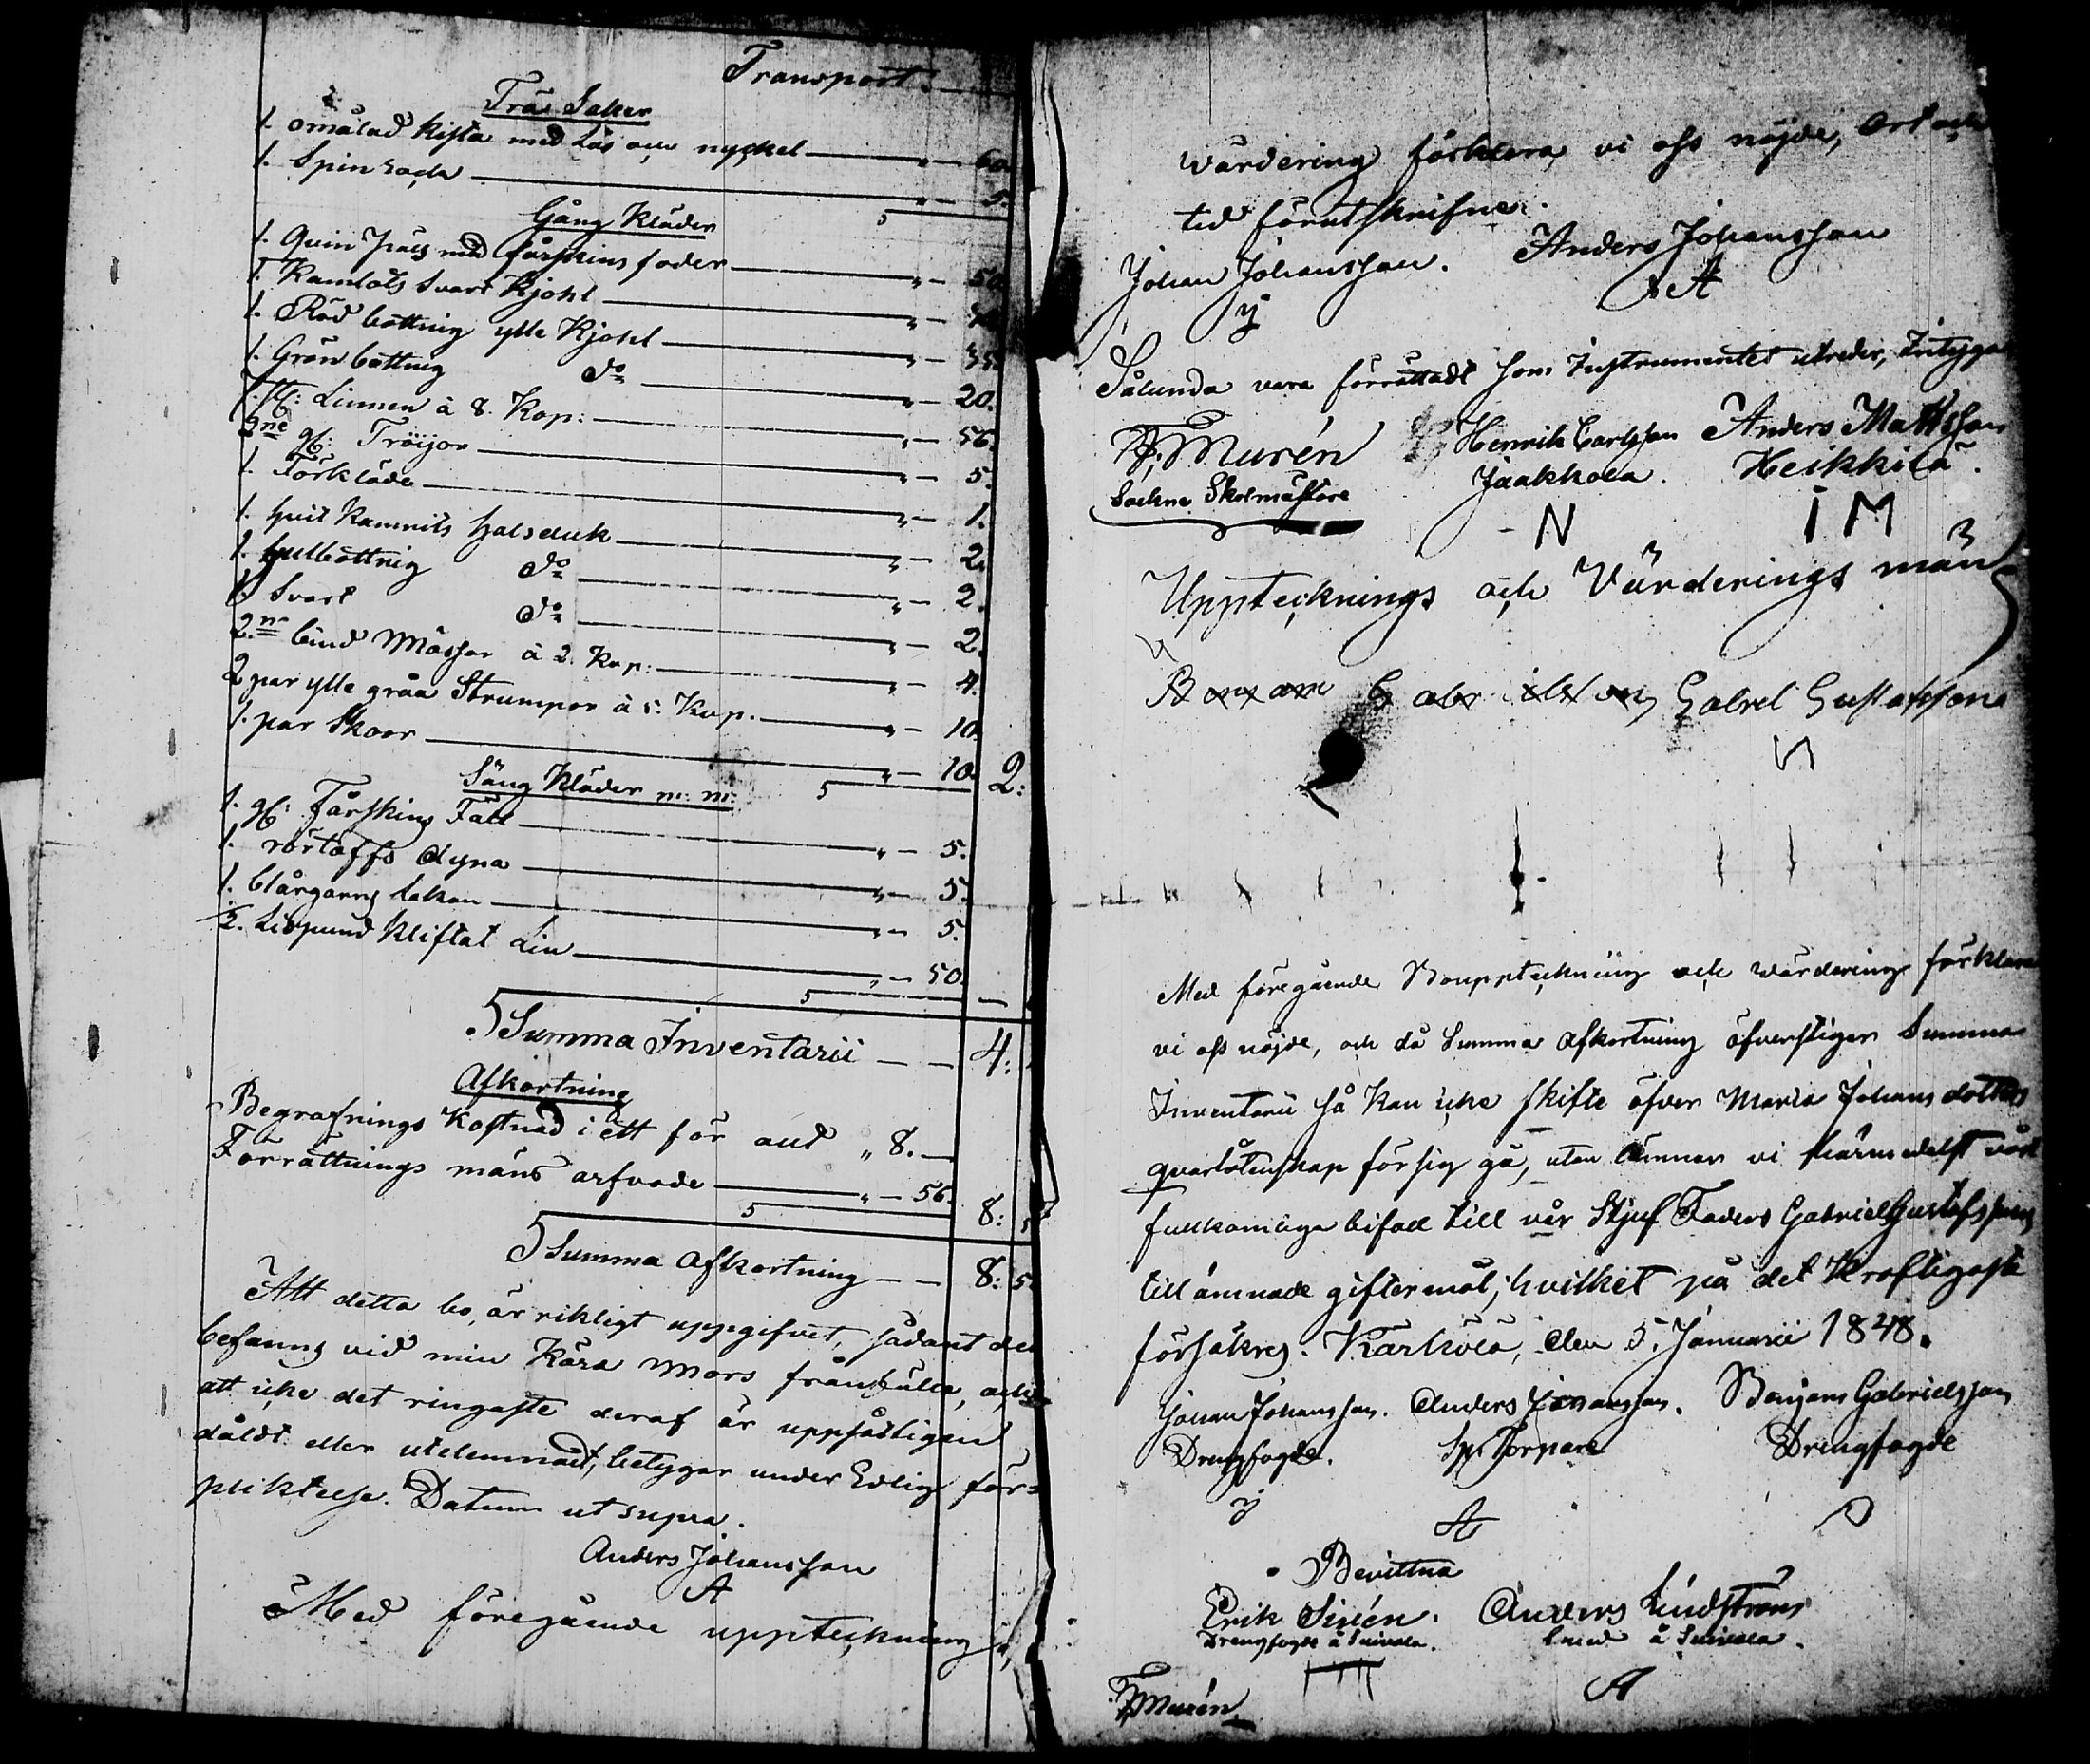 Transport.
Trä Saker
1. omålad kista med Lås och nyckel — „ — 60.
1. Spinrock — „ — 5.
Gång Kläder
1. Quin Päls med fårskins foder — „ — 50.
1. Kamlots Svart Kjohl — „ —
1. Röd bottnig ylle Kjohl — „ — 35.
1. Grön bottnig do — „ — 20.
7. st: Linnen à 8. Kop: — „ — 56.
2ne gl: Tröijor — „ — 5.
1. Förkläde — „ — 1.
1. hvit Kamrits halsduk — „ — 2.
1. hvitbottnig do — „ — 2.
1. Svart do — „ — 2.
2ne bind Mössor à 2. Kop: — „ — 4.
2 par ylle gråa Strumpor à 5. Kop. — „ — 10.
1. par Skoor — „ — 10. 2:
Säng Kläder m: m:
1. gl: Fårskins Fäll — „ — 5.
1. dyna — „ — 5.
1. blårgarns Lakan — „ — 5.
½. Lispund kliftat Lin — „ — 50.
Summa Inventarii — — 4:
Afkortning
Begrafnings Kostnad i ett för allt „ 8. —
Förrättnings mäns arfvode — „ — 56. 8:
Summa Afkortning — — 8: 5
Att detta bo, är riktigt uppgifvet, sådant det
befanns vid min Kära Mors frånfälle, och
att icke det ringaste deraf är uppsåtligen
dåldt eller utelemnadt, betygar under Edlig för=
pliktelse. Datum ut supra.
Anders Johansson
A
Med föregående uppteckning
värdering förklara vi oss nöjde, Ort och
tid förutskrifne.
Johan Johansson. Anders Johansson
A
Sålunda vara förrättadt som Instrumentet utreder, Intyga
Murén Henrik Carlsson Anders Mattsson
Sockne Skolmästare Jaakkola. Heikkilä.
N I M
Uppteknings och Värderings män
Gabrel Gustafsson
Med föregående Bouppteckning och värdering förklara
vi oss nöjde, och då Summa Afkortning öfverstiger Summa
Inventarii så kan icke skifte öfver Maria Johans dotters
qvarlåtenskap för sig gå, utan lämnar vi härmedelst vårt
fullkomliga bifall till vår Stjuf Faders Gabriel Gustafssons
till ämnade giftermål, hvilket på det kraftigaste
försäkres. Karkola, den 5. Januarii 1848.
Johan Johansson. Anders Johansson. Benjam Gabrielsson
Drengfogde. Torpare Drengfogde
A
Bevittna
Erik Sirén. Anders Lindström
Drengfogde å Suivala. Smed å Suivala.
A
Murén